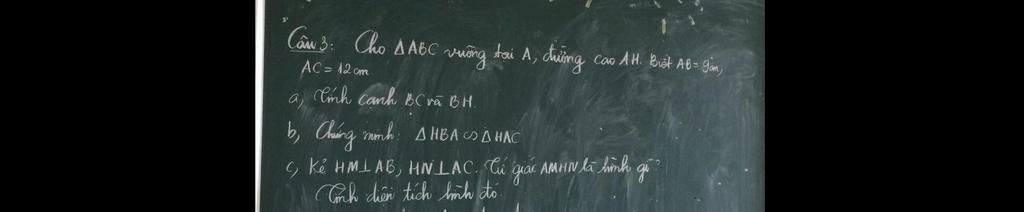 Câu 3: Cho ΔABC vuông tại A, đường cao AH. Biết AB = 9cm,
AC = 12cm
a, Tính cạnh BC và BH.
b, Chứng minh: ΔHBA ∽ ΔHAC
c, Kẻ HM⊥AB, HN⊥AC. Tứ giác AMHN là hình gì?
Tính diện tích hình đó.